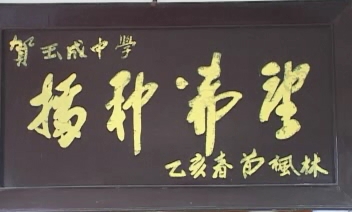 賀玉成中學
播种希望
乙亥春芍楓林